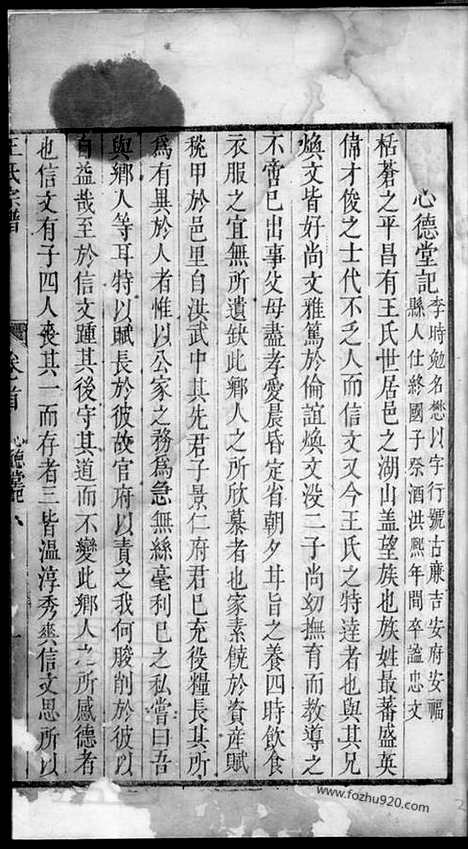 心德堂記
李時勉名懋以字行號古廉吉安府安福
縣人仕終國子祭酒洪熙年間卒謚忠文
栝蒼之平昌有王氏世居邑之湖山盖望族也族姓最蕃盛英
偉才俊之士代不乏人而信文又今王氏之特達者也與其兄
煥文皆好尚文雅篤於倫誼煥文没二子尚幼撫育而教導之
不啻已出事父母盡孝愛晨昏定省朝夕甘旨之養四時飲食
衣服之宜無所遺缺此鄉人之所欣慕者也家素饒於資産賦
稅甲於邑里自洪武中其先君子景仁府君已充役糧長其所
為有異於人者惟以公家之務為急無絲毫利已之私嘗曰吾
與鄉人等耳特以賦長於彼故官府以責之我何朘削於彼以
自益哉至於信文踵其後守其道而不變此鄉人之所感德者
也信文有子四人喪其一而存者三皆温淳秀爽信文思所以
王氏宗譜
卷首
心德堂記
www.fozhu920.com